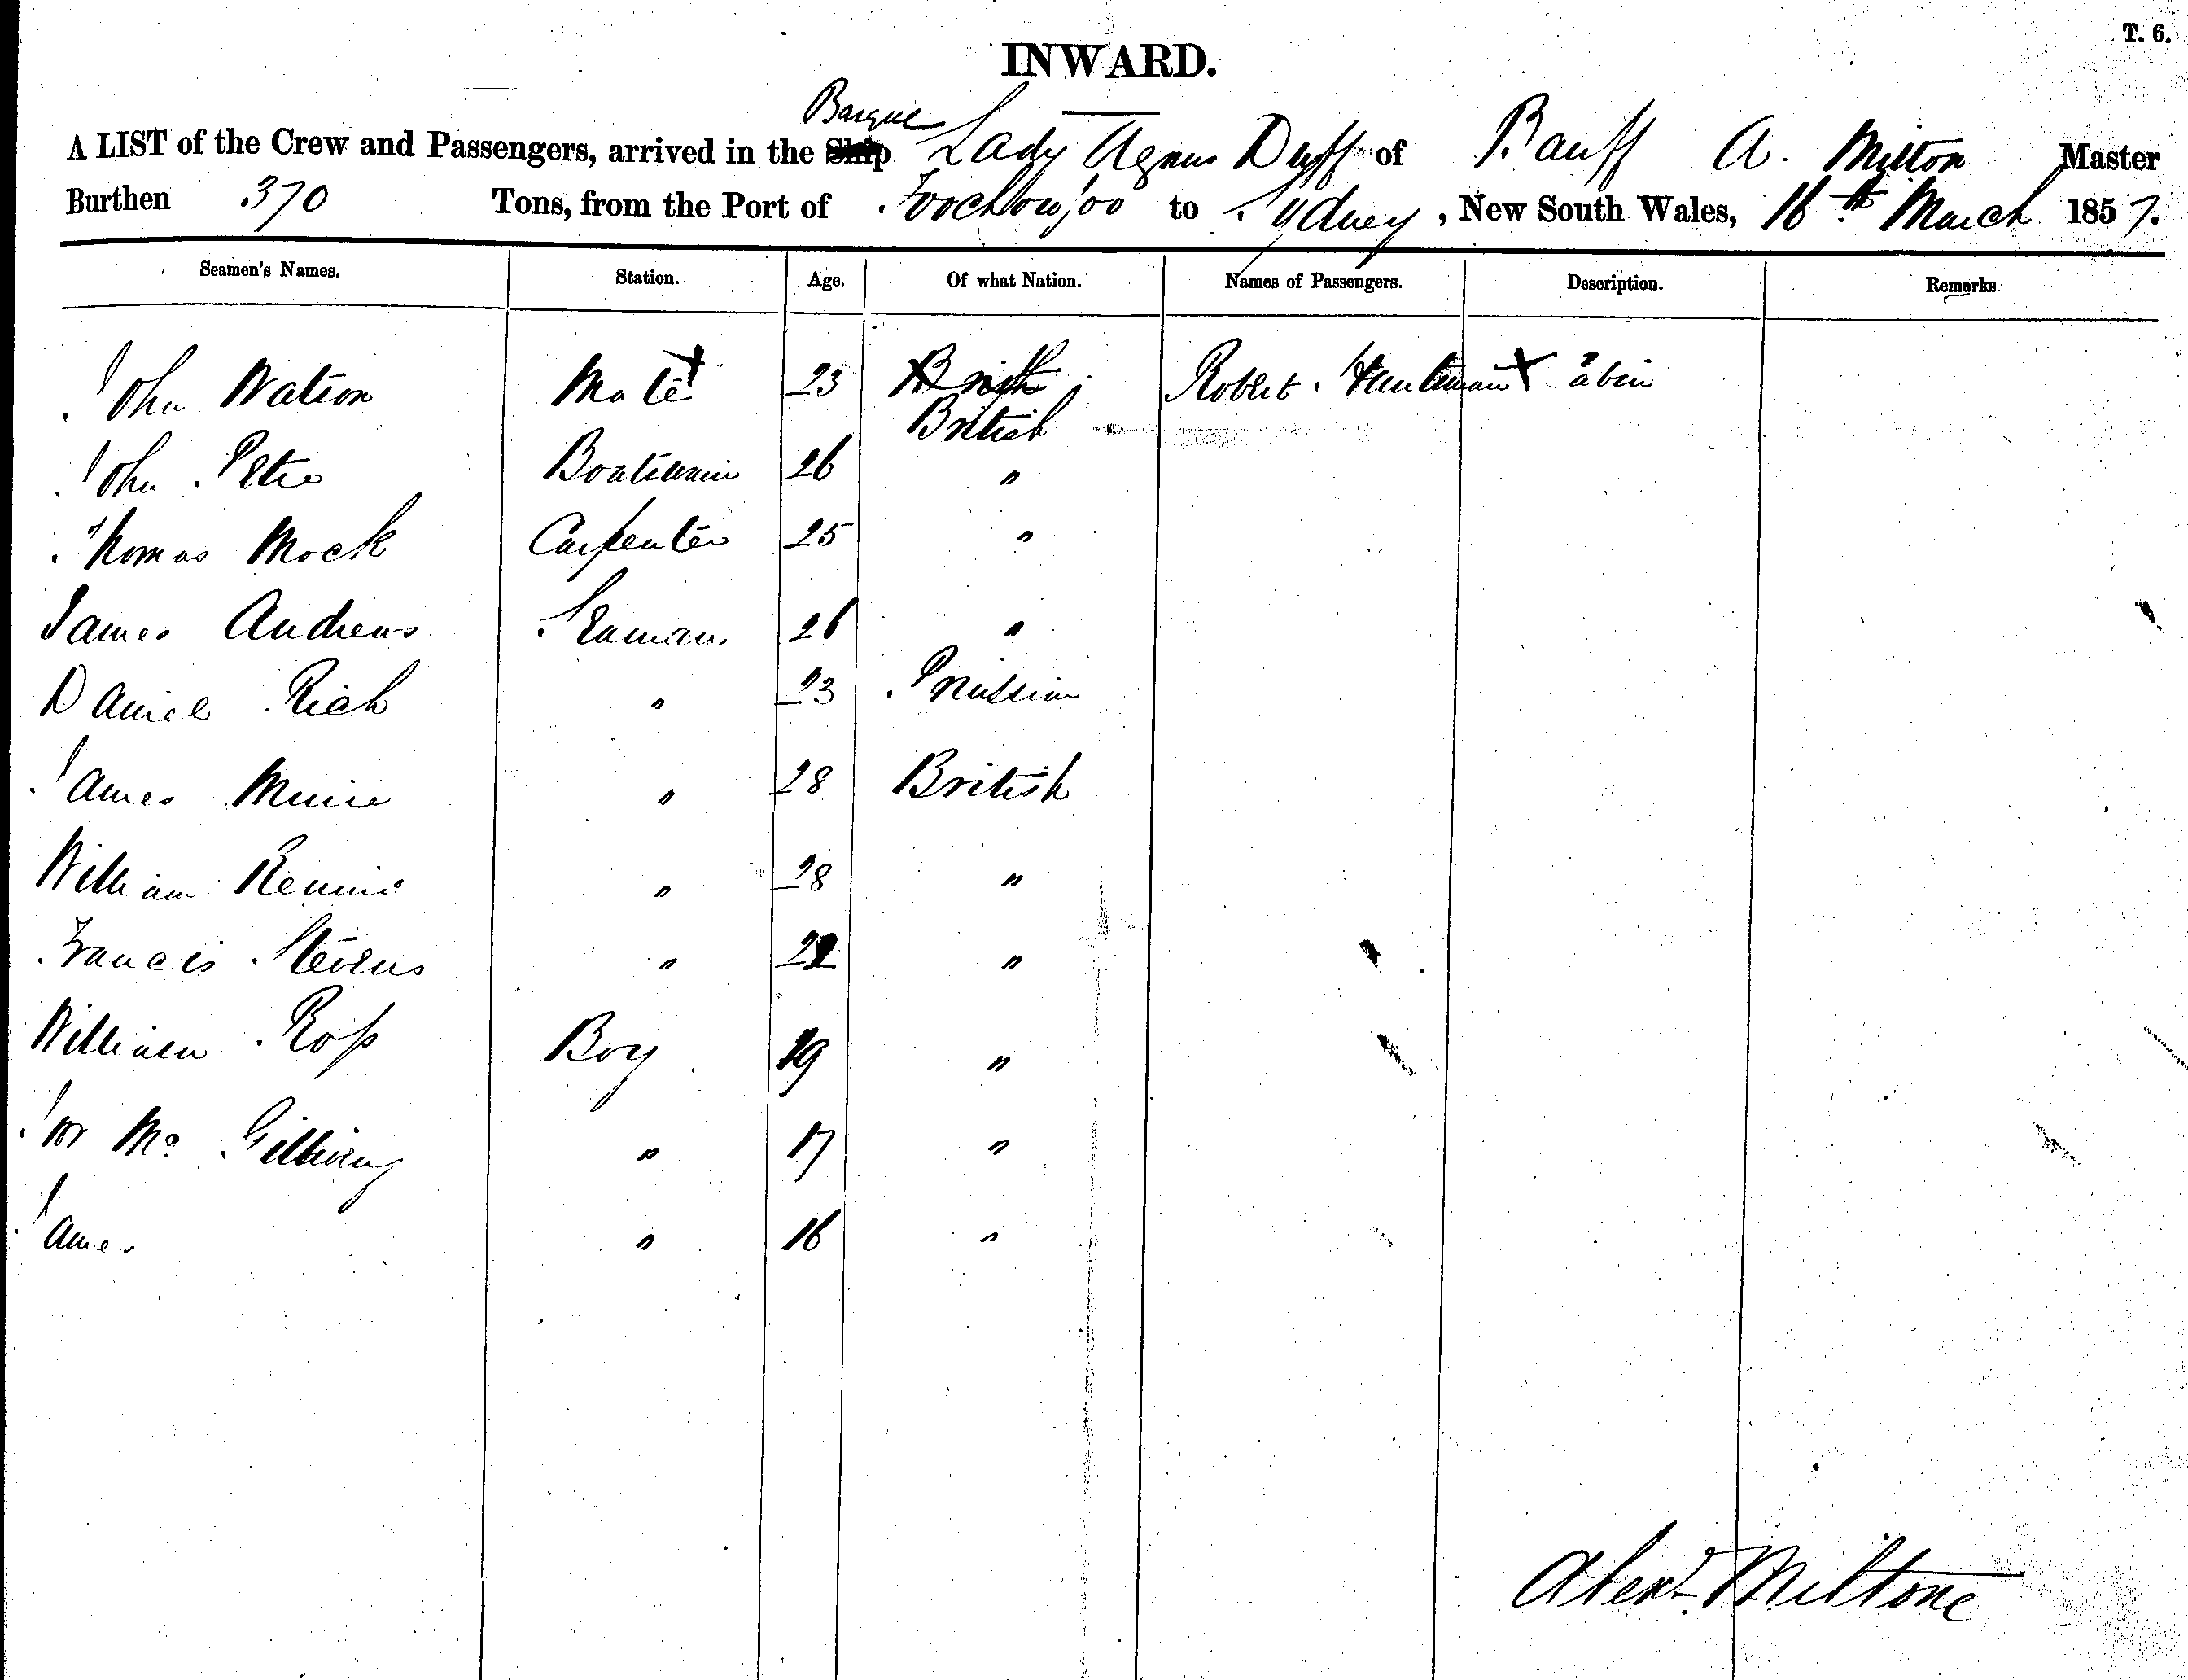 T. 6.
INWARD.
Barque
A LIST of the Crew and Passengers, arrived in the Ship Lady Agnes Duff of Banff A. Milton Master
Burthen 370 Tons, from the Port of Foochowfoo to Sydney, New South Wales, 16th March 1857.
Seamen's Names. Station. Age. Of what Nation. Names of Passengers. Description. Remarks.
John Watson Mate 23 British Robert Cabin
British
John Petrie Boatswain 26 "
Thomas Mock Carpenter 25 "
James Andrews Seaman 26 "
Daniel Rich " 23 Prussian
James Muire " 28 British
William Rennie " 28 "
Francis Stevens " 22 "
William Ross Boy 19 "
Mc Gillivray " 17 "
James " 16 "
Alexr Miltone